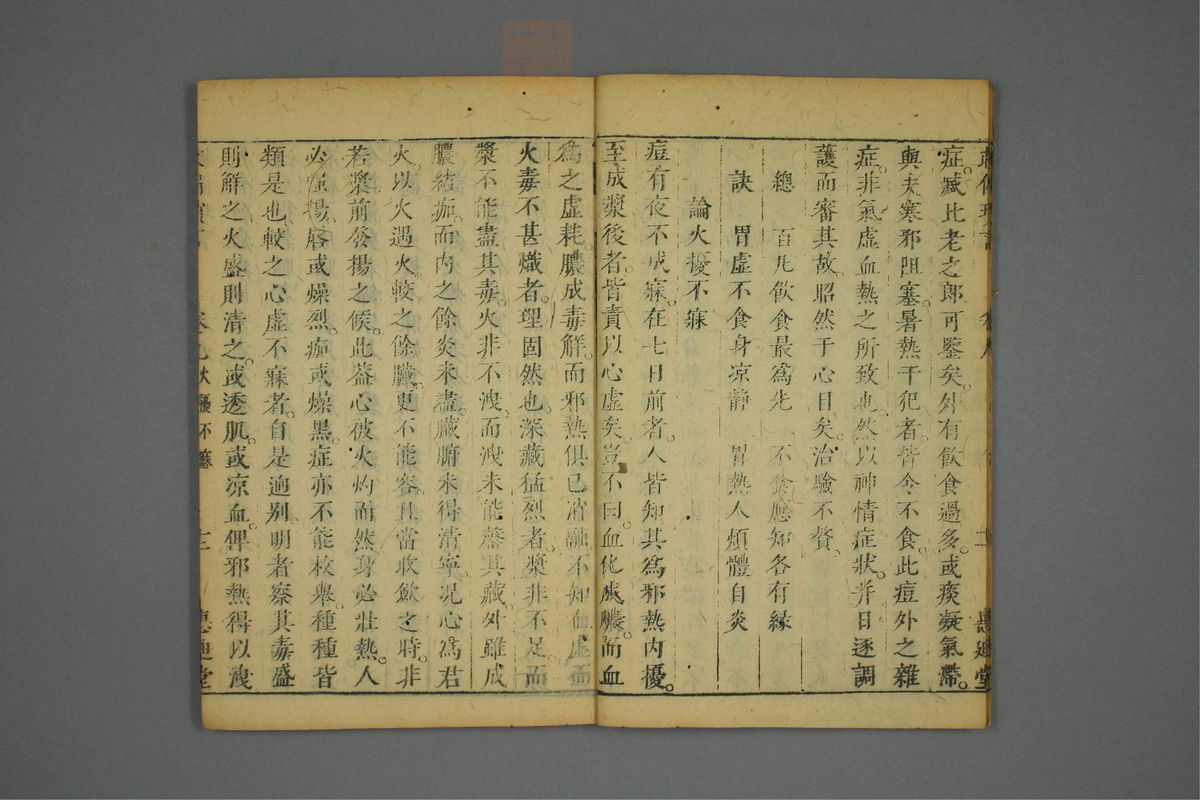 症臧比老之郎可鑒矣外有飲食過多或痰凝氣滯
與夫寒邪阻塞暑熱干犯者皆令不食此痘外之雜
症非氣虛血熱之所致也然以神情症狀并日逐調
護而審其故昭然于心目矣治驗不贅
總 百凡飲食最為先 不食應知各有緣
訣 胃虛不食身凉靜 胃熱人煩體自炎
論火擾不寐
痘有夜不成寐在七日前者人皆知其為邪熱內擾
至成漿後者皆責以心虛矣豈不曰血化成膿而血
為之虛耗膿成毒解而邪熱俱已消融不知血虛而
火毒不甚熾者理固然也深藏猛烈者漿非不足而
漿不能盡其毒火非不洩而洩未能罄其藏外雖成
膿結痂而內之餘炎未盡臟腑未得清寧况心為君
火以火遇火較之餘臟更不能容且當收斂之時非
若漿前發揚之候此益心被火灼而然身必壯熱人
必強揚唇或燥烈痂或燥黑症亦不能枚舉種種皆
類是也較之心虛不寐者自是逈別明者察其毒盛
則解之火盛則清之或透肌或凉血俾邪熱得以洩
火擾不寐
惠迪堂